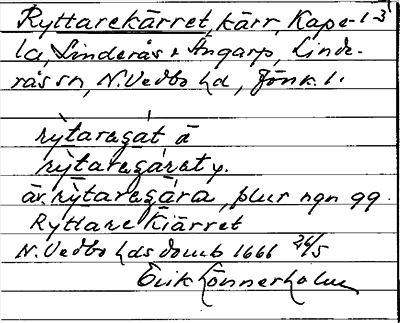 Ryttarekärret, kärr, Kape- 1-3
la, Linderås o Ängarp, Linde-
rås sn, N. Vedbo hd, Jönk. l.
rỳtaragát ä
rỳtaragárat y.
äv. rỳtaragára, plur ngn gg.
Ryttare Kiärret
N. Vedbo hds domb 1666 26/5
Erik Lönnerholm